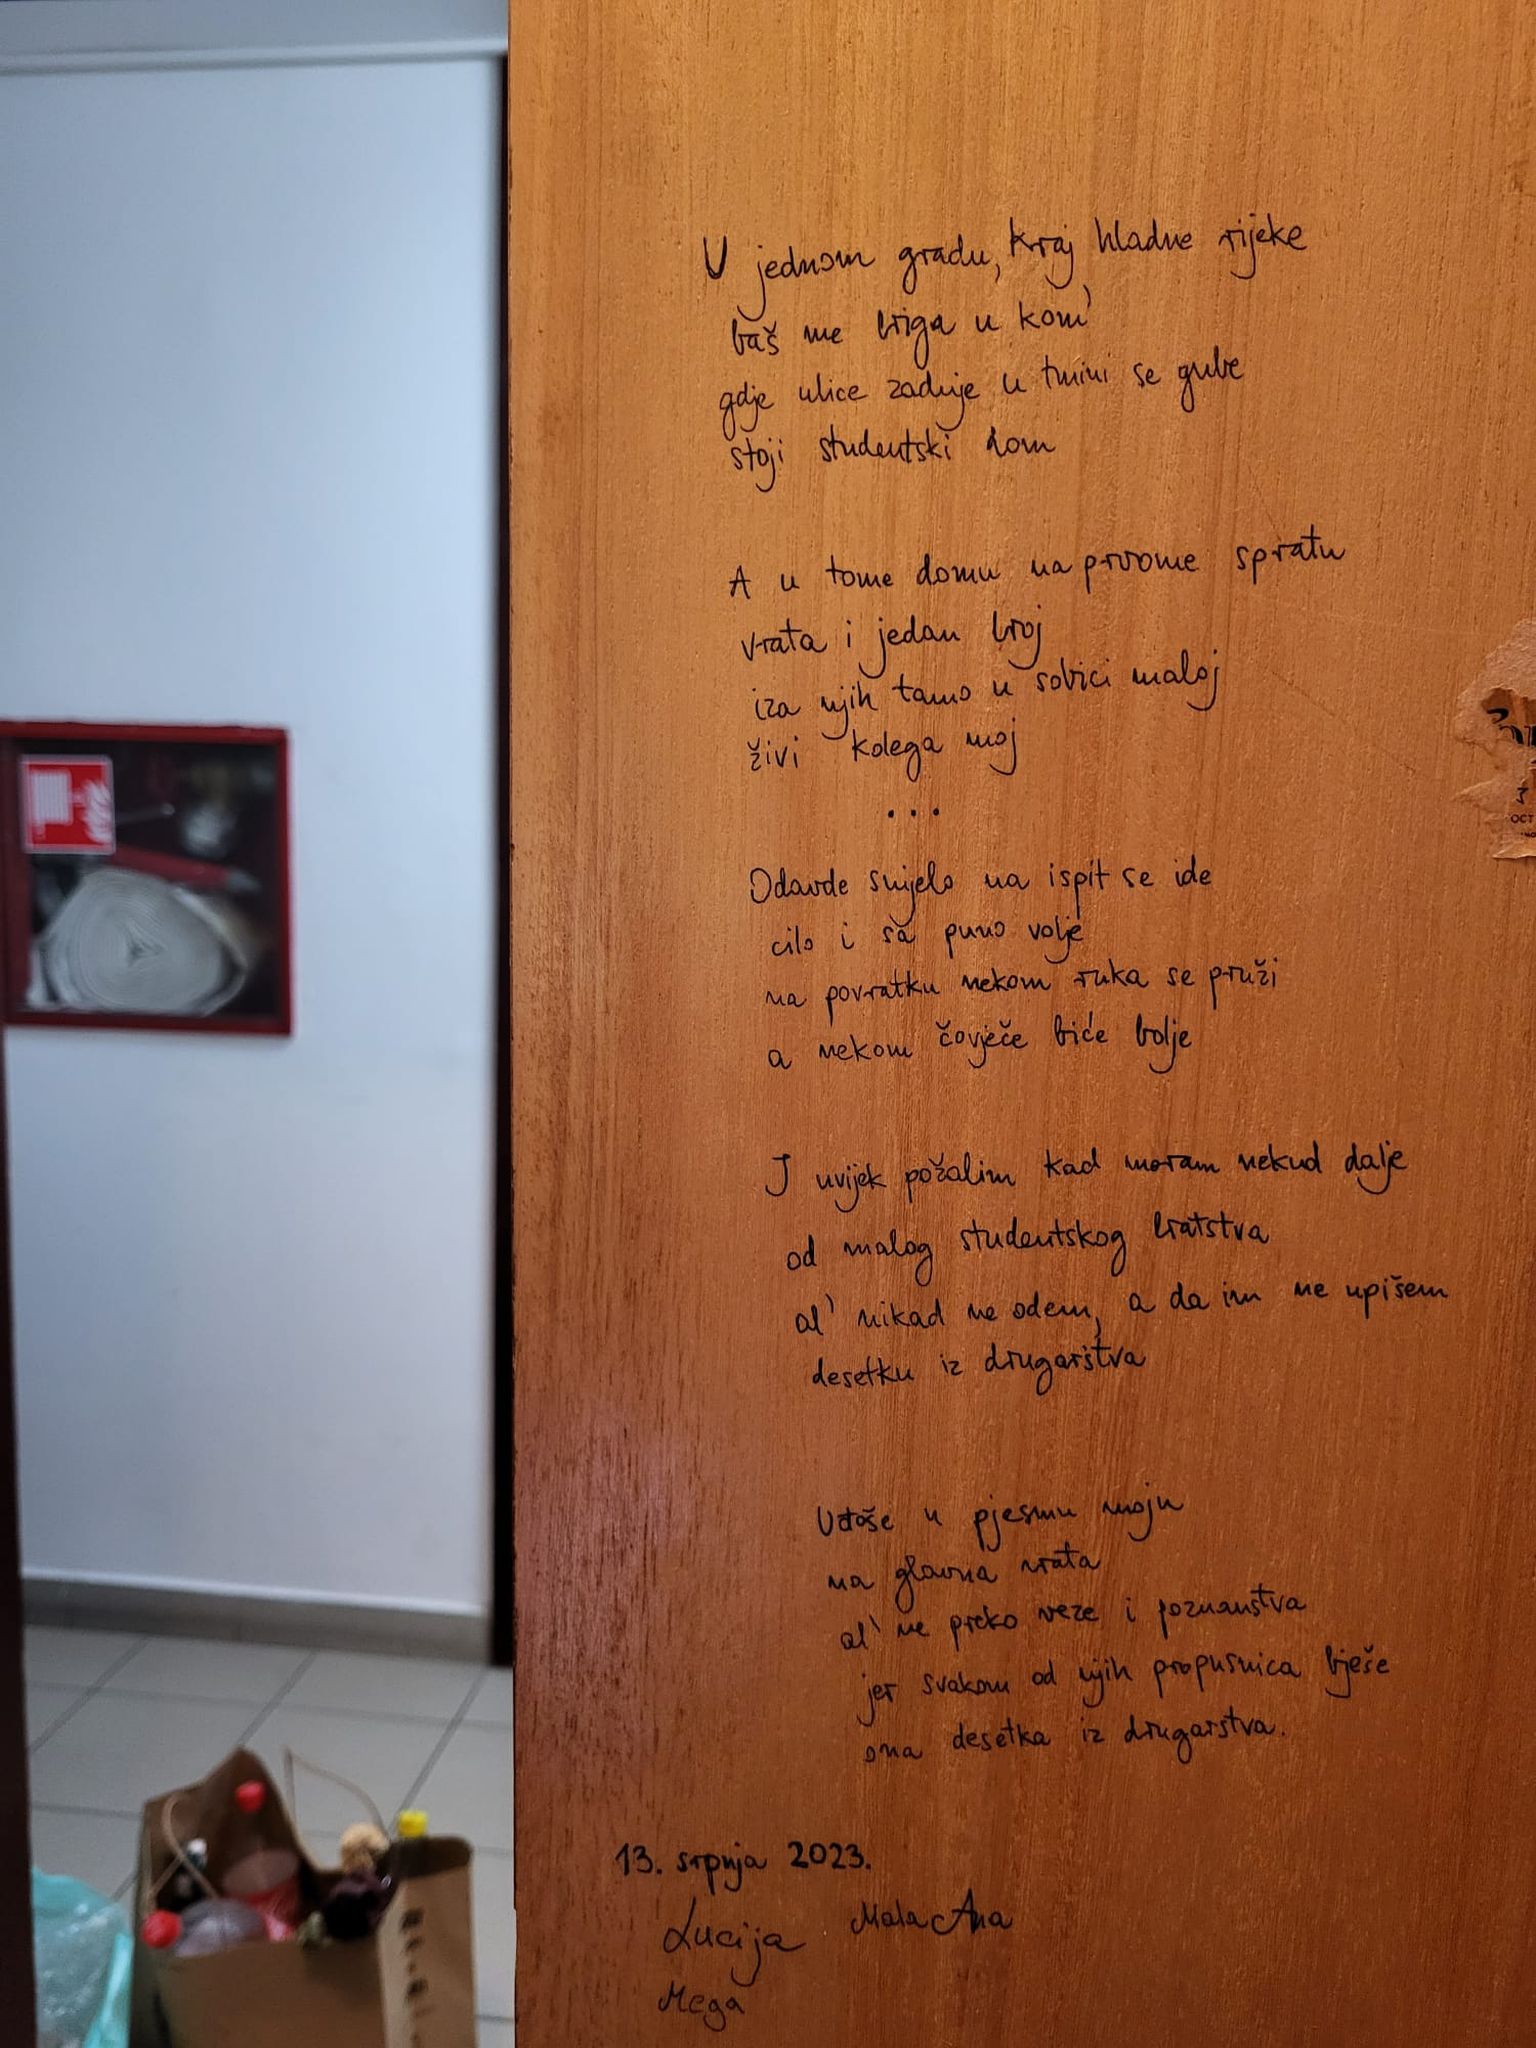 U jednom gradu, kraj hladne rijeke
baš me briga u kom'
gdje ulice zadnje u tmini se gube
stoji studentski dom
A u tome domu na prvome spratu
vrata i jedan broj
iza njih tamo u sobici maloj
živi kolega moj
...
Odavde smjelo na ispit se ide
cilo i sa puno volje
na povratku nekom ruka se pruži
a nekom čovječe biće bolje
I uvijek požalim kad moram nekud dalje
od malog studentskog bratstva
al' nikad ne odem, a da im ne upišem
desetku iz drugarstva
Uđoše u pjesmu moju
na glavna vrata
al' ne preko veze i poznanstva
jer svakom od njih propusnica bješe
ona desetka iz drugarstva.
13. srpnja 2023.
Lucija Mala Ana
Mega
3
OCT